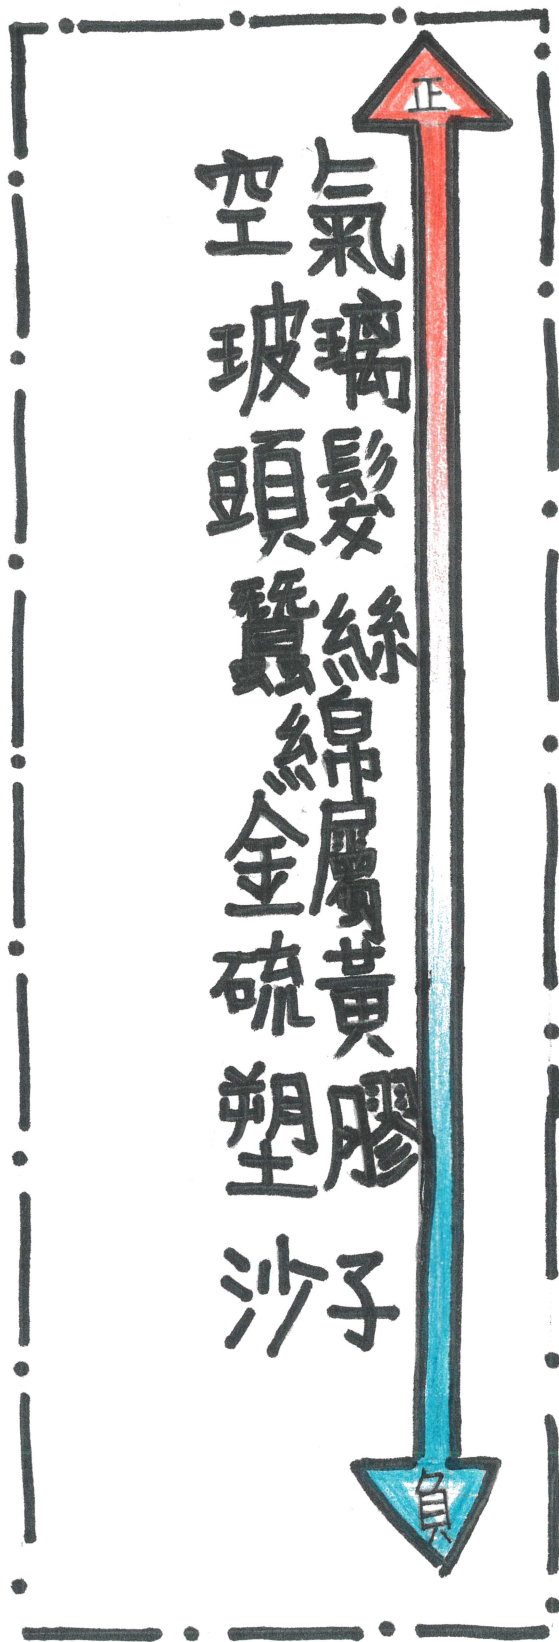 正
空氣
玻璃
頭髮
蠶絲
綿
金屬
硫黃
塑膠
沙子
負